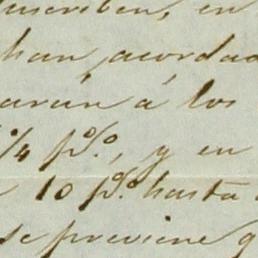 suscriben, en
han acordad
aran á los
1/4 p%, y en
10 p% hasta
se previene q